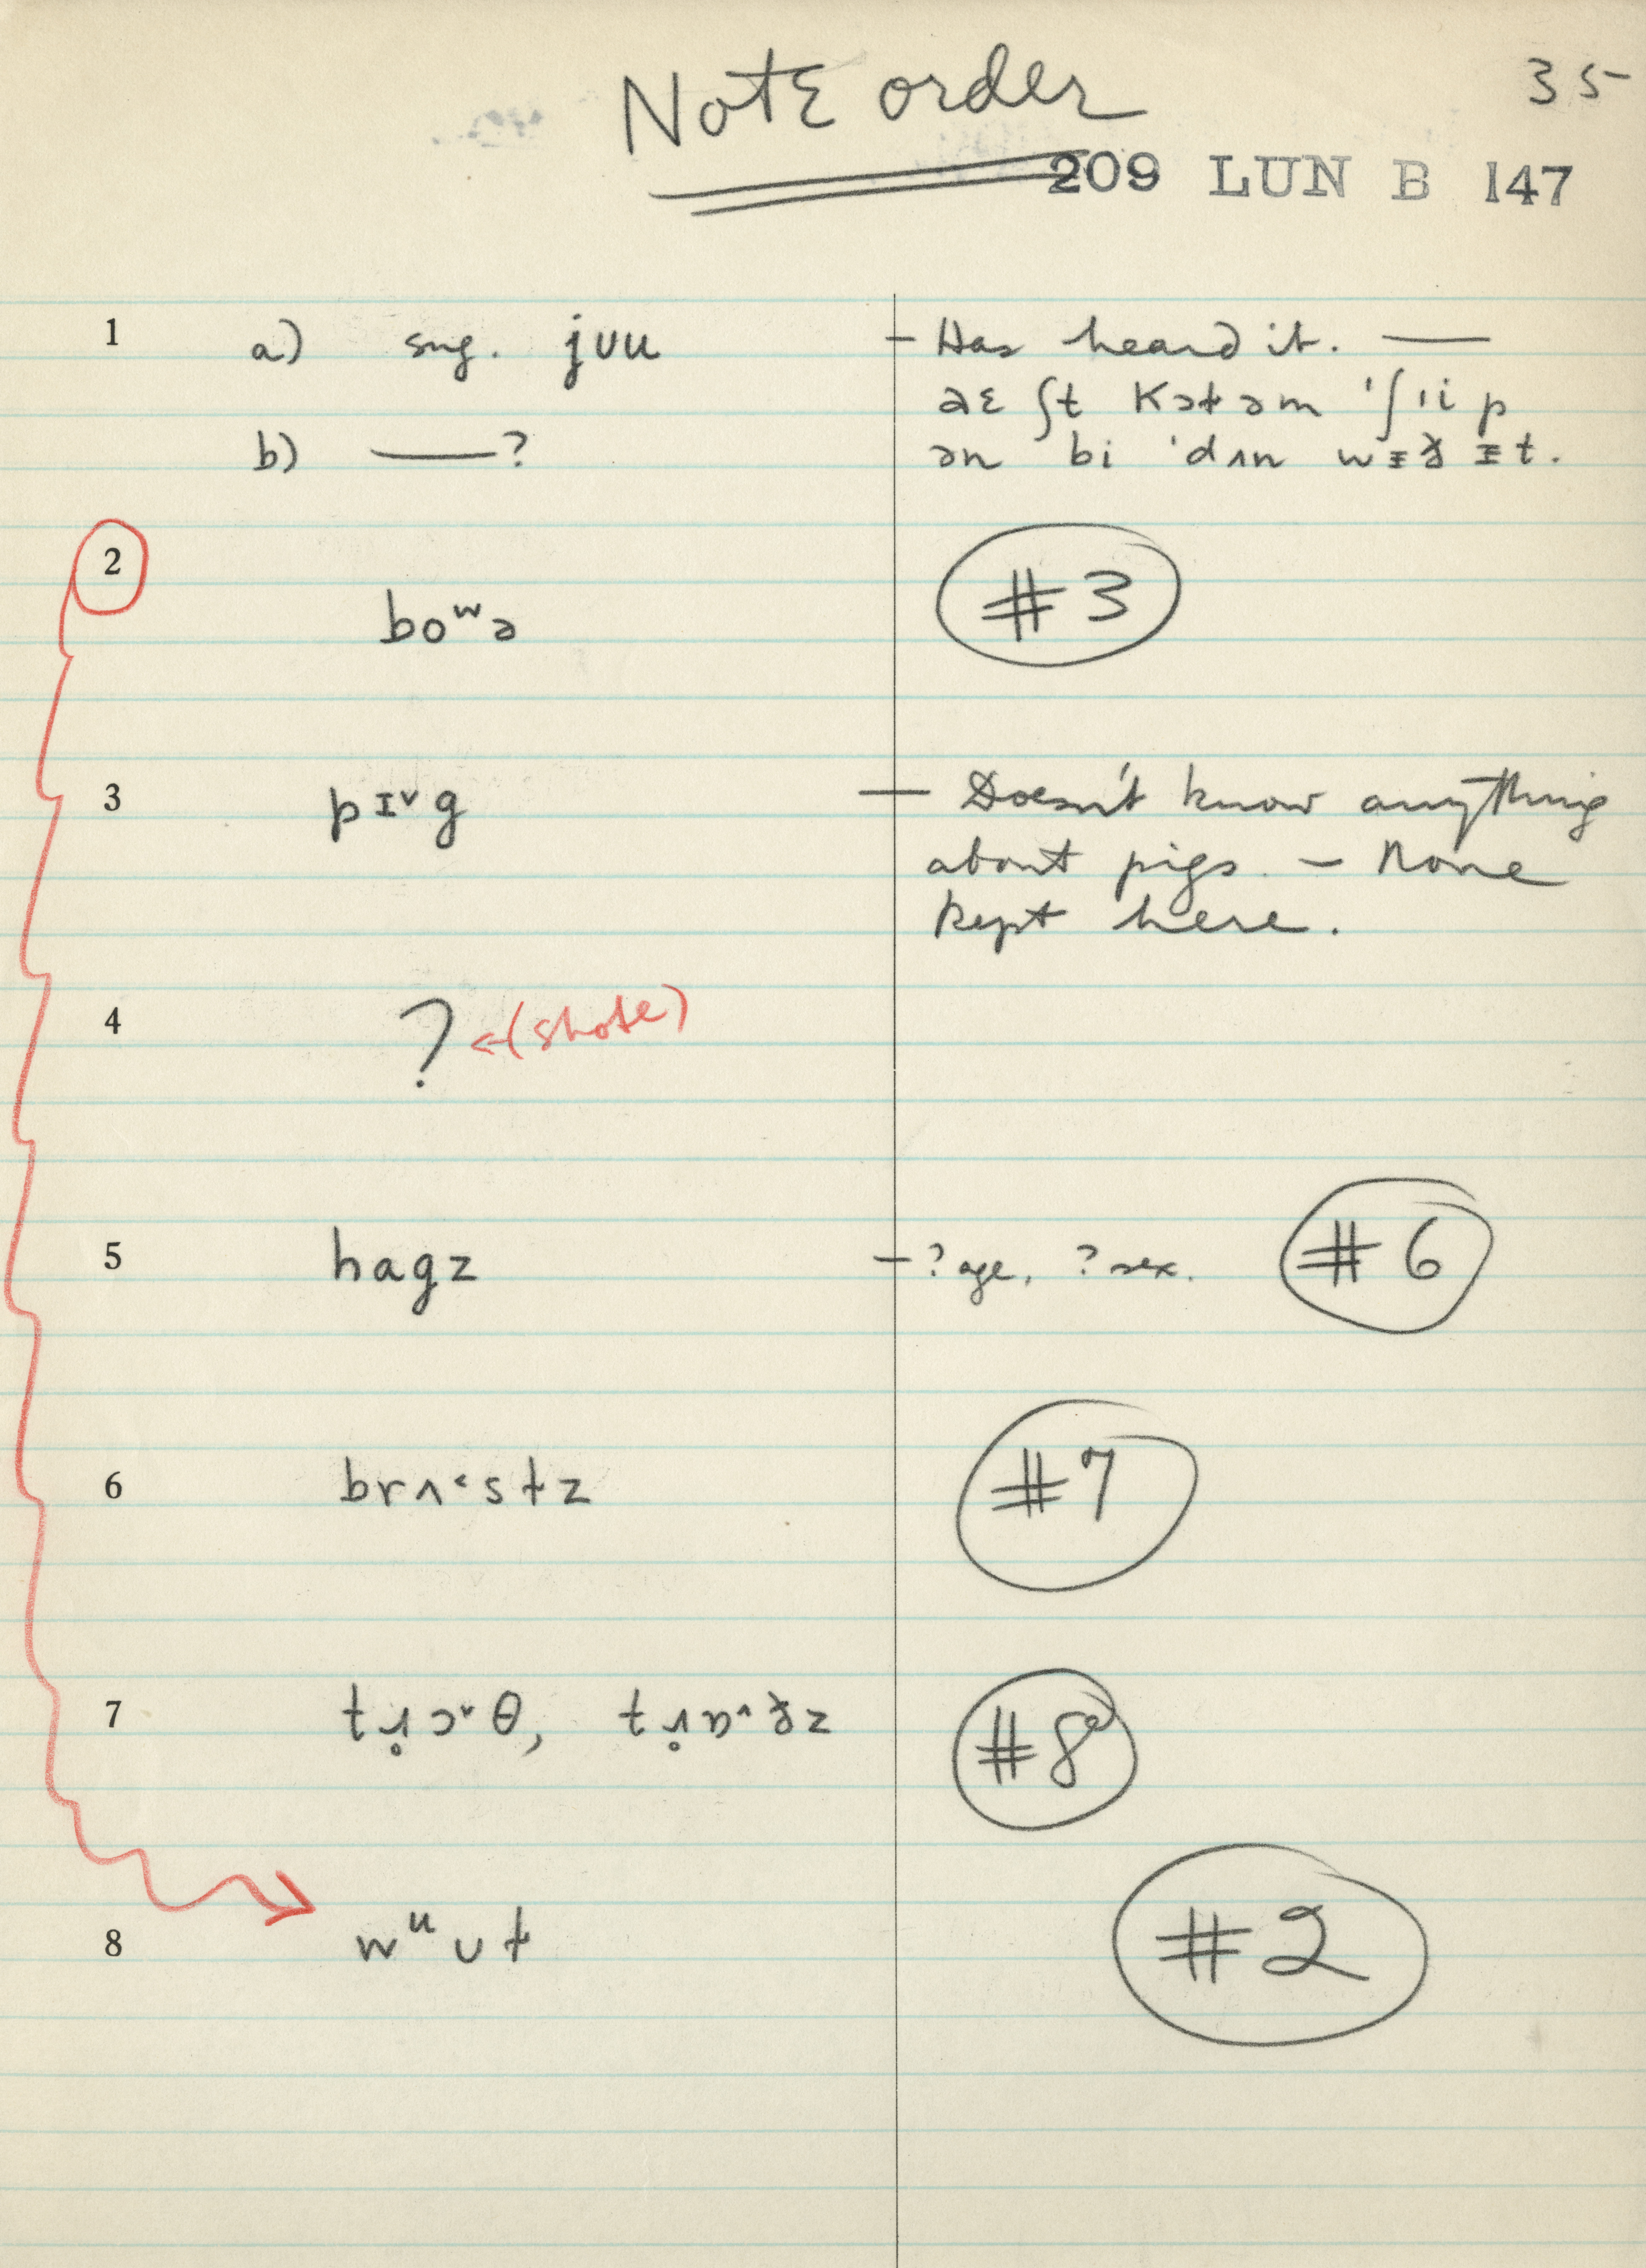 Note order
35
209 LUN B 147
1 a) sng. jʊu – Has heard it. —
ðɛ ʃt kɔɫ əm 'ʃıi p
b) —? ən bi 'dʌn wɪð ɪt.
2
boʷə #3
3 pɪ˅g — Doesn't know anything
about pigs. – None
kept here.
4 ? ←(shote)
5 hagz – ? age, ? sex. #6
6 brʌ˂stz #7
7 #8
8 wᵘʊt #2